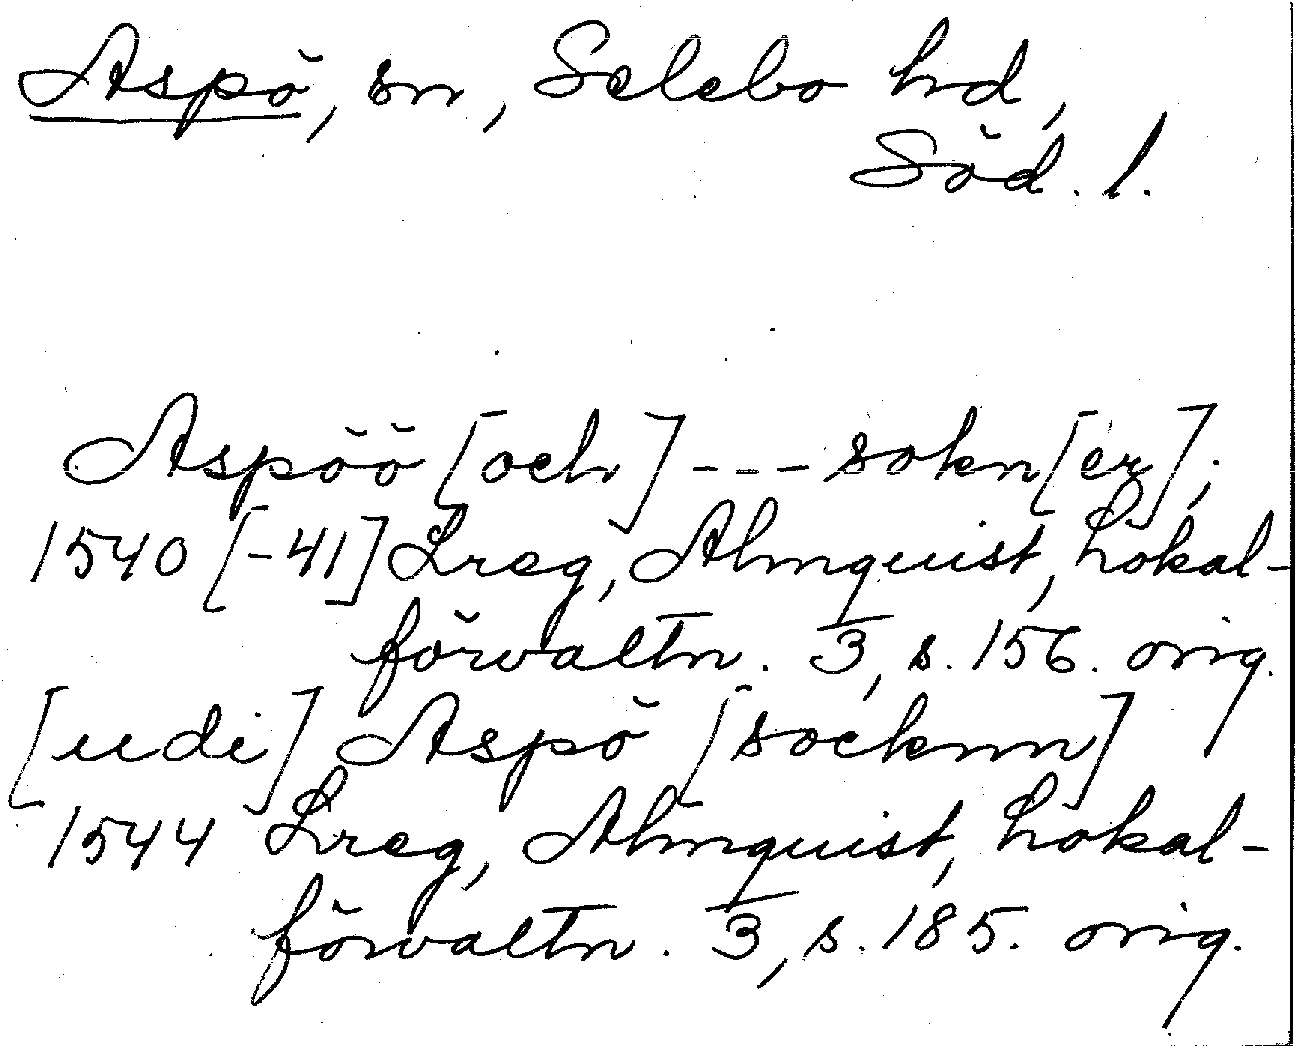 Aspö, sn, Selebo hd,
Söd. l.
Aspöö [och] --- sokn[er];
1540 [-41] Lreg, Almquist, Lokal-
förvaltn. 3, s. 156. orig.
[udi] Aspö [socknn]
1544 Lreg, Almquist, Lokal-
förvaltn. 3, s. 185. orig.